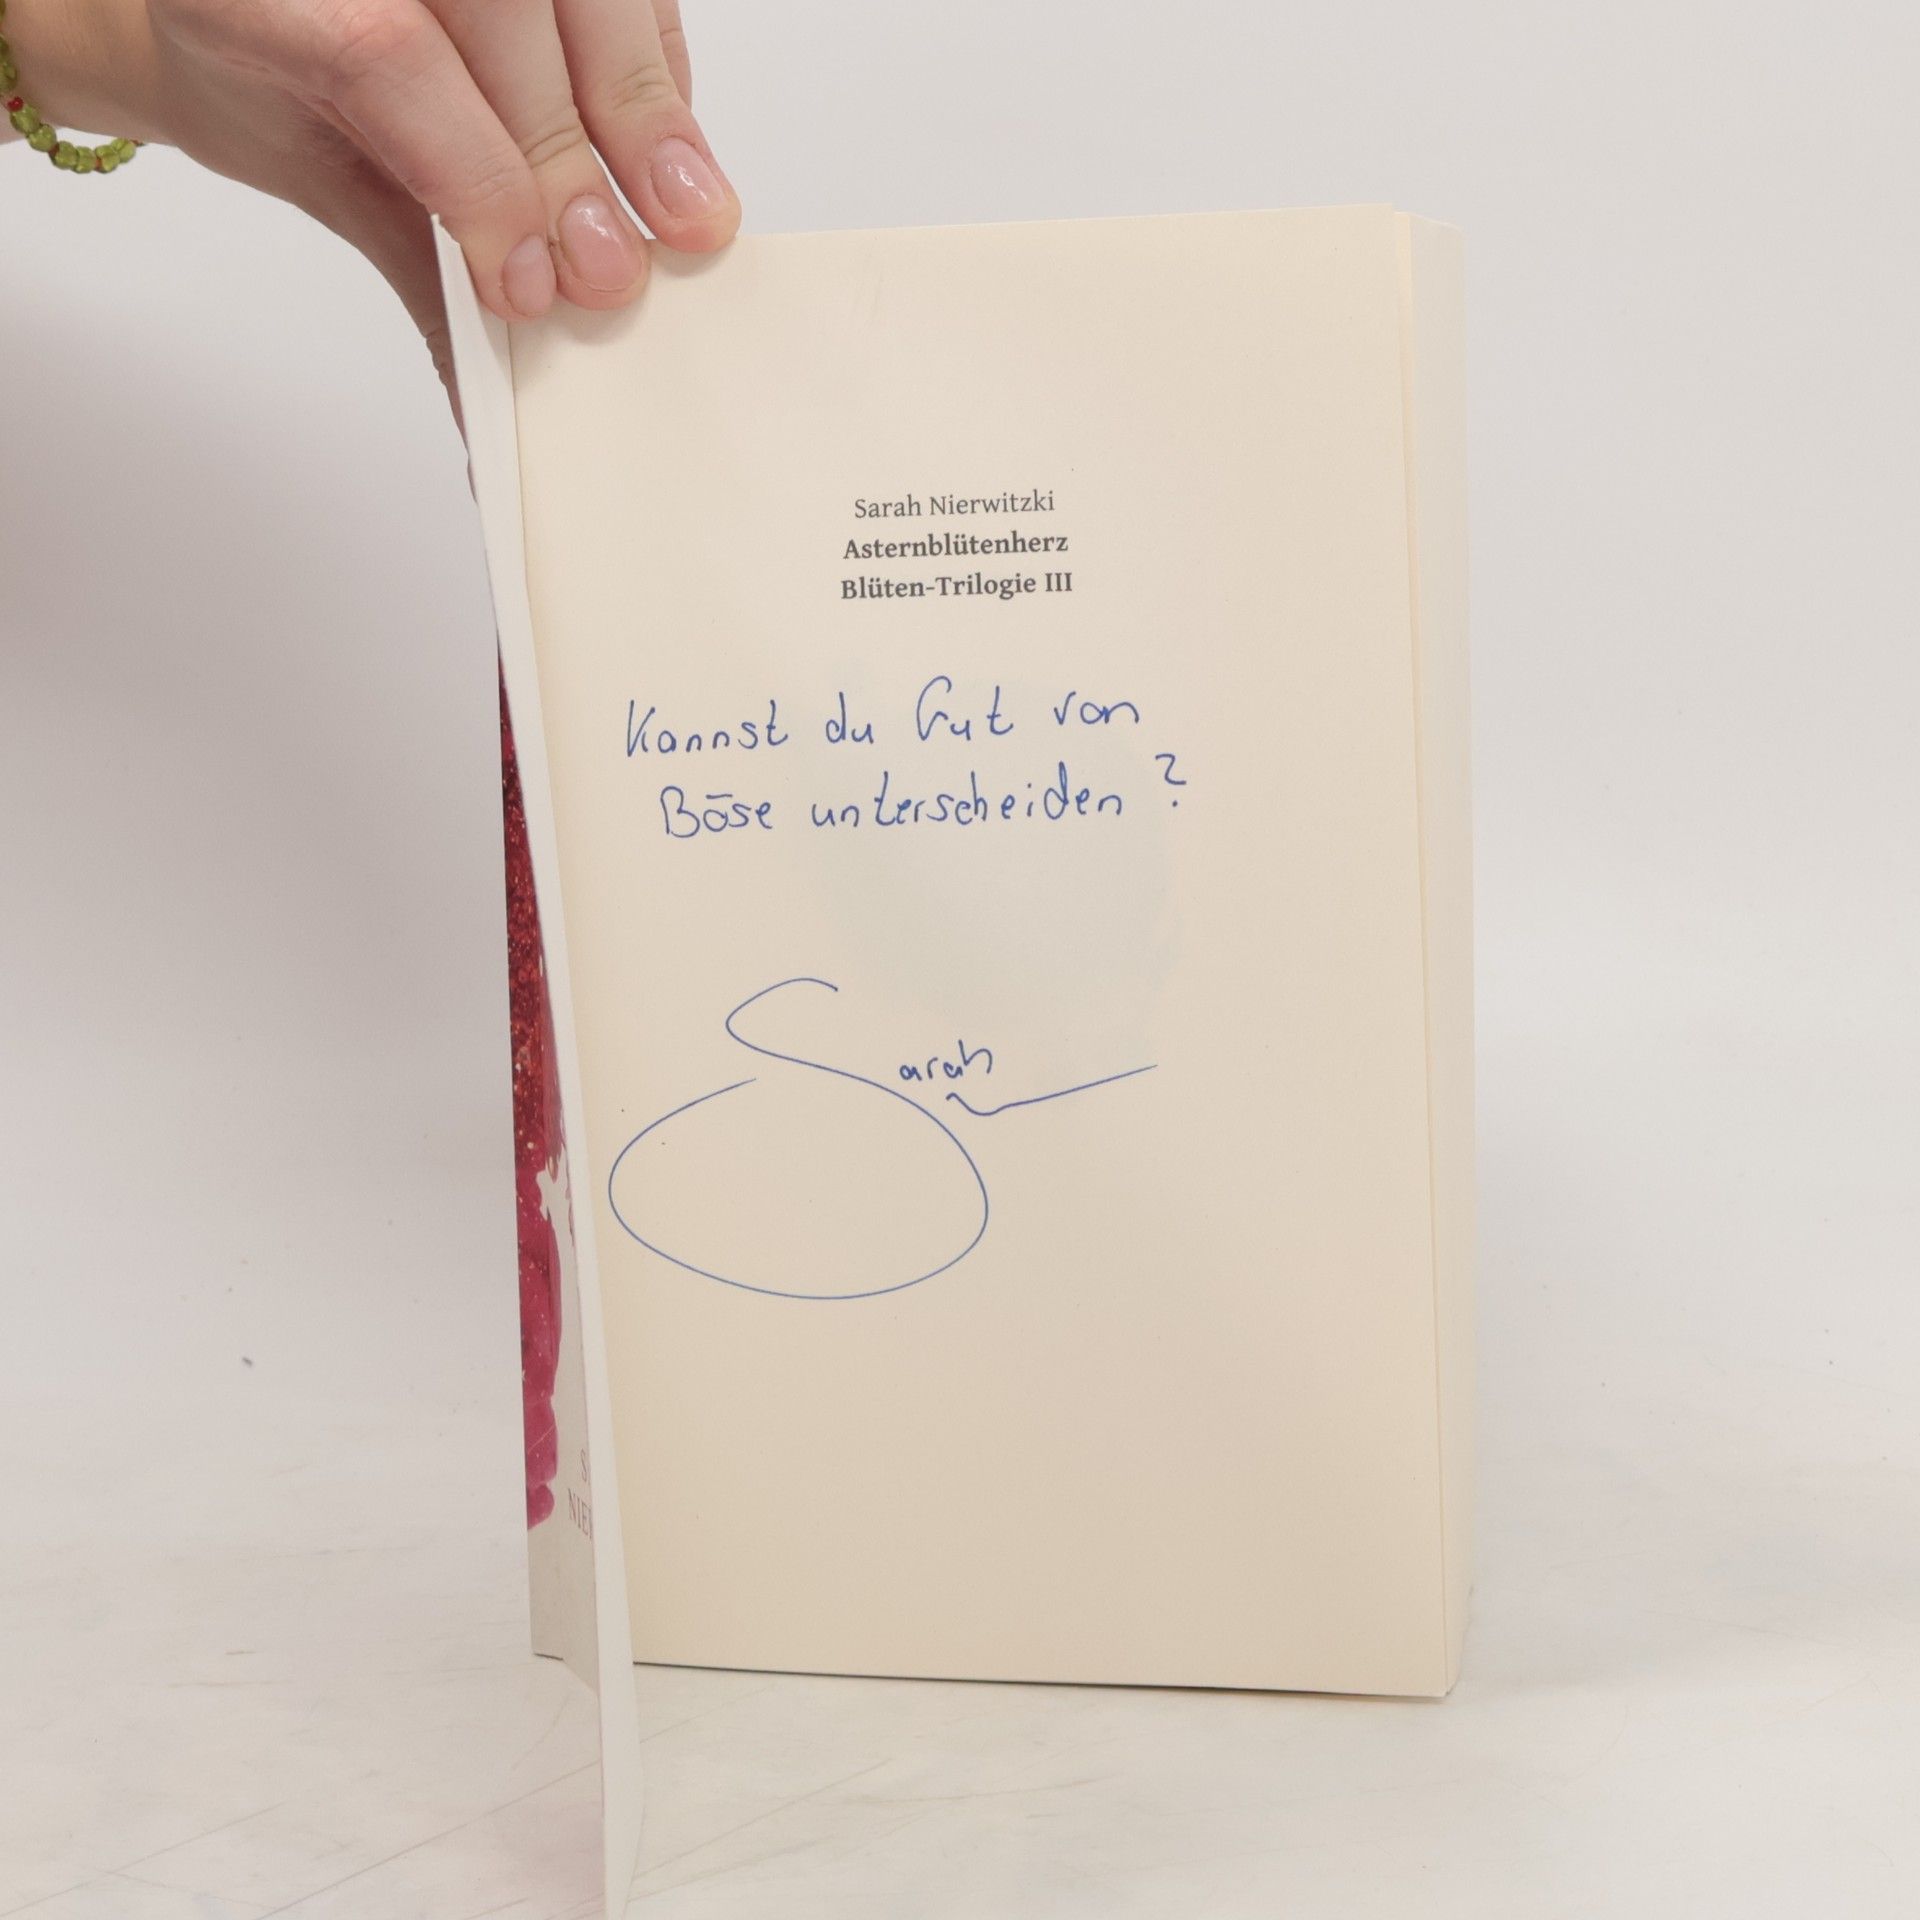 Sarah Nierwitzki
Asternblütenherz
Blüten-Trilogie III
Kannst du Gut von
Böse unterscheiden?
Sarah